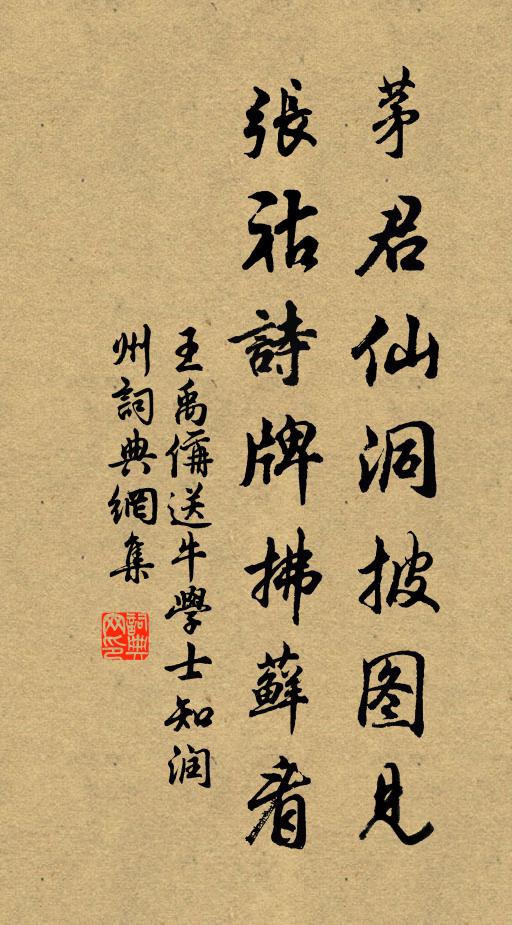 茅君仙洞披图見
張祜詩牌拂蘚看
王禹偁送牛學士知润
州詞典網集
詞典网印